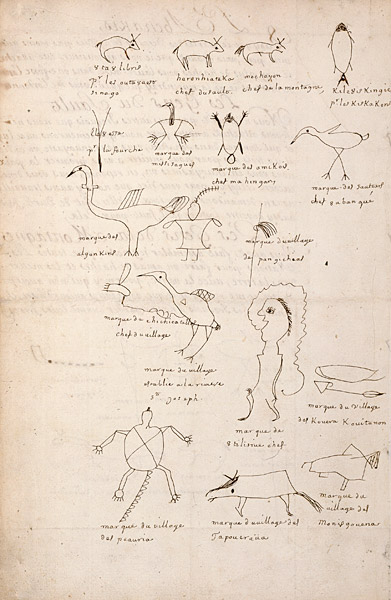 outoutlibis
pr les outaouacs
sinago
haronhiateka
chef du saulo.
machayon
chef de la montagne
Kileoiskingie
pr les KisKaKons
Elioassa
pr la fourche
marque des
missisagues
marque des amikois
chef mahingan
marque des sauteurs
chef ouabangué
marque des
algonkins
marque du village
de pangicheas
marque de chichicatalo
chef du village
marque du village
establie a la riviere
St joseph
marque de
chef
marque du village
des Kouera Kouitanon
marque du village
des peauria
marque du village des
Tapouaroua
marque du
village des
Monisgouena